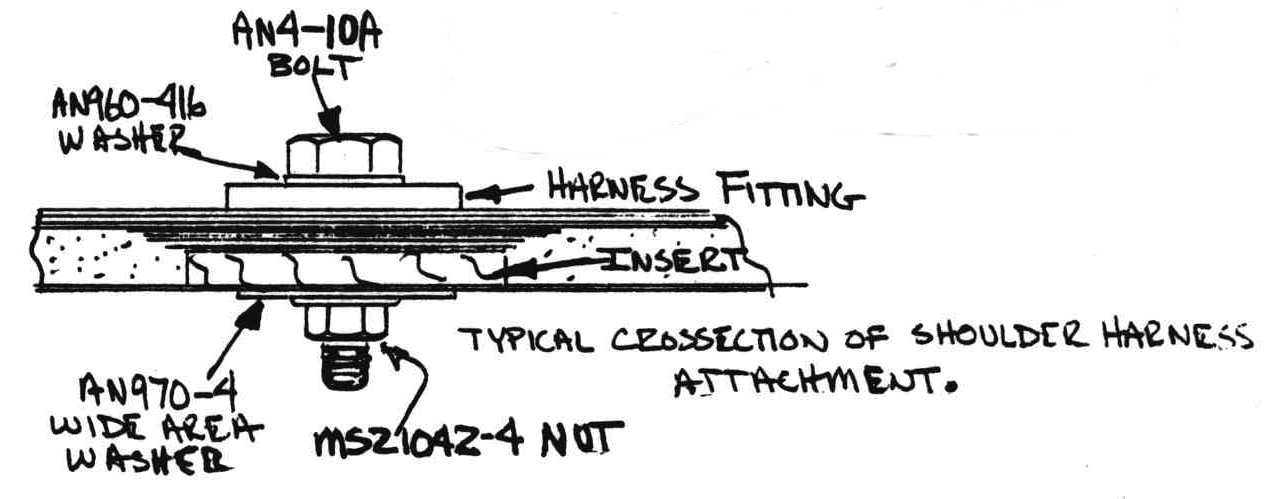 AN4-10A
BOLT
AN960-416
WASHER
HARNESS FITTING
INSERT
TYPICAL CROSSECTION OF SHOULDER HARNESS
ATTACHMENT.
AN970-4
WIDE AREA
WASHER
MS21042-4 NUT